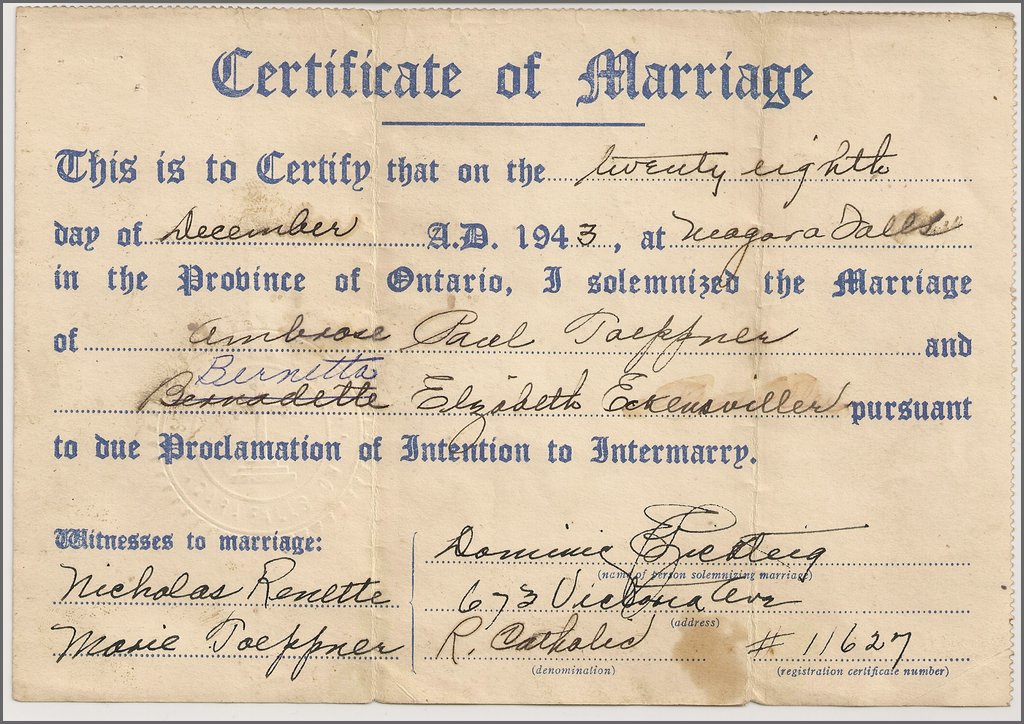 Certificate of Marriage
This is to Certify that on the twenty eighth
day of December A.D. 1943, at Niagara Falls
in the Province of Ontario, I solemnized the Marriage
of Ambrose Paul Toeppner and
Bernetta
Bernadette Elizabeth Eckensviller pursuant
to due Proclamation of Intention to Intermarry.
Witnesses to marriage:
Nicholas Renette
Marie Toeppner
Dominic
(name of person solemnizing marriage)
673 Victoria Ave
(address)
R. Catholic
(denomination)
# 11627
(registration certificate number)